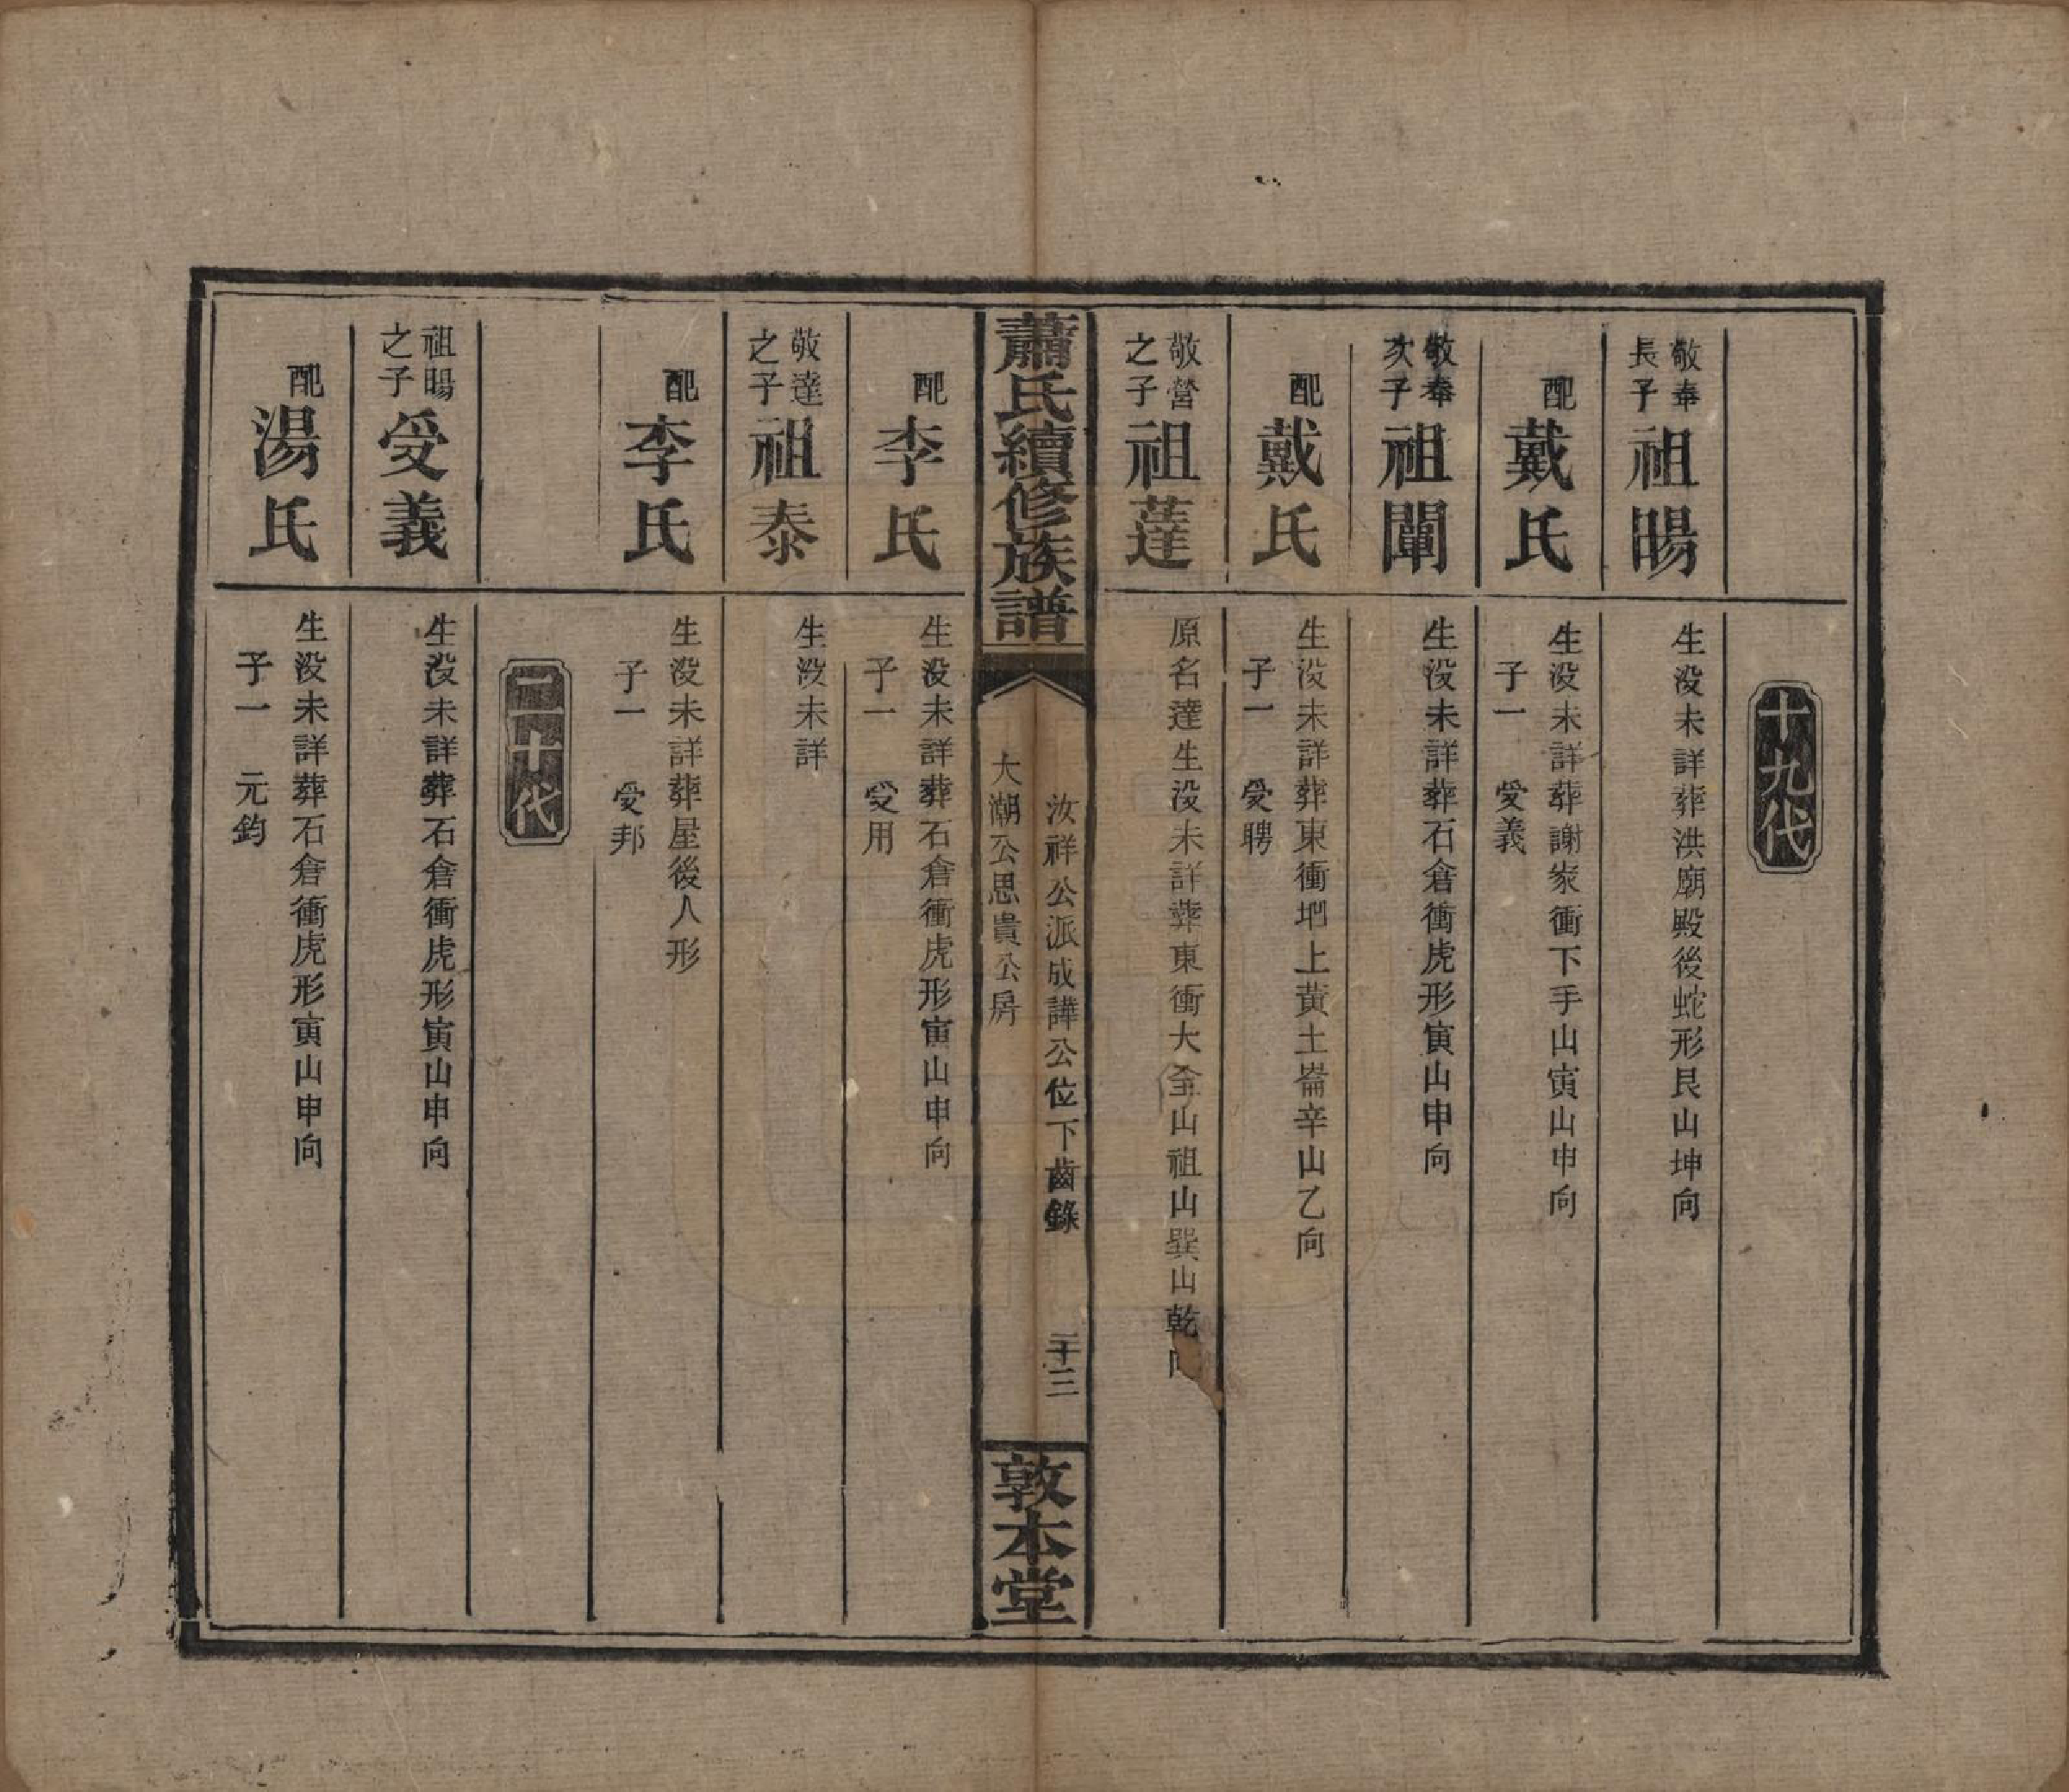 十九代
敬奉長子祖暘
生没未詳葬洪廟殿後蛇形艮山坤向
配戴氏
生没未詳葬謝家衝下手山寅山申向
子一　受義
敬奉次子祖闡
生没未詳葬石倉衝虎形寅山申向
配戴氏
生没未詳葬東衝垇上黃土崙辛山乙向
子一　受聘
敬營之子祖薘
原名達生没未詳葬東衝大全山祖山巽山乾向
蕭氏續修族譜
汝祥公派成譁公位下齒錄
大潮公思貴公房
二十三
敦本堂
配李氏
生没未詳葬石倉衝虎形寅山申向
子一　受用
敬達之子祖泰
生没未詳
配李氏
生没未詳葬屋後人形
子一　受邦
二十代
祖暘之子受義
生没未詳葬石倉衝虎形寅山申向
配湯氏
生没未詳葬石倉衝虎形寅山申向
子一　元鈞